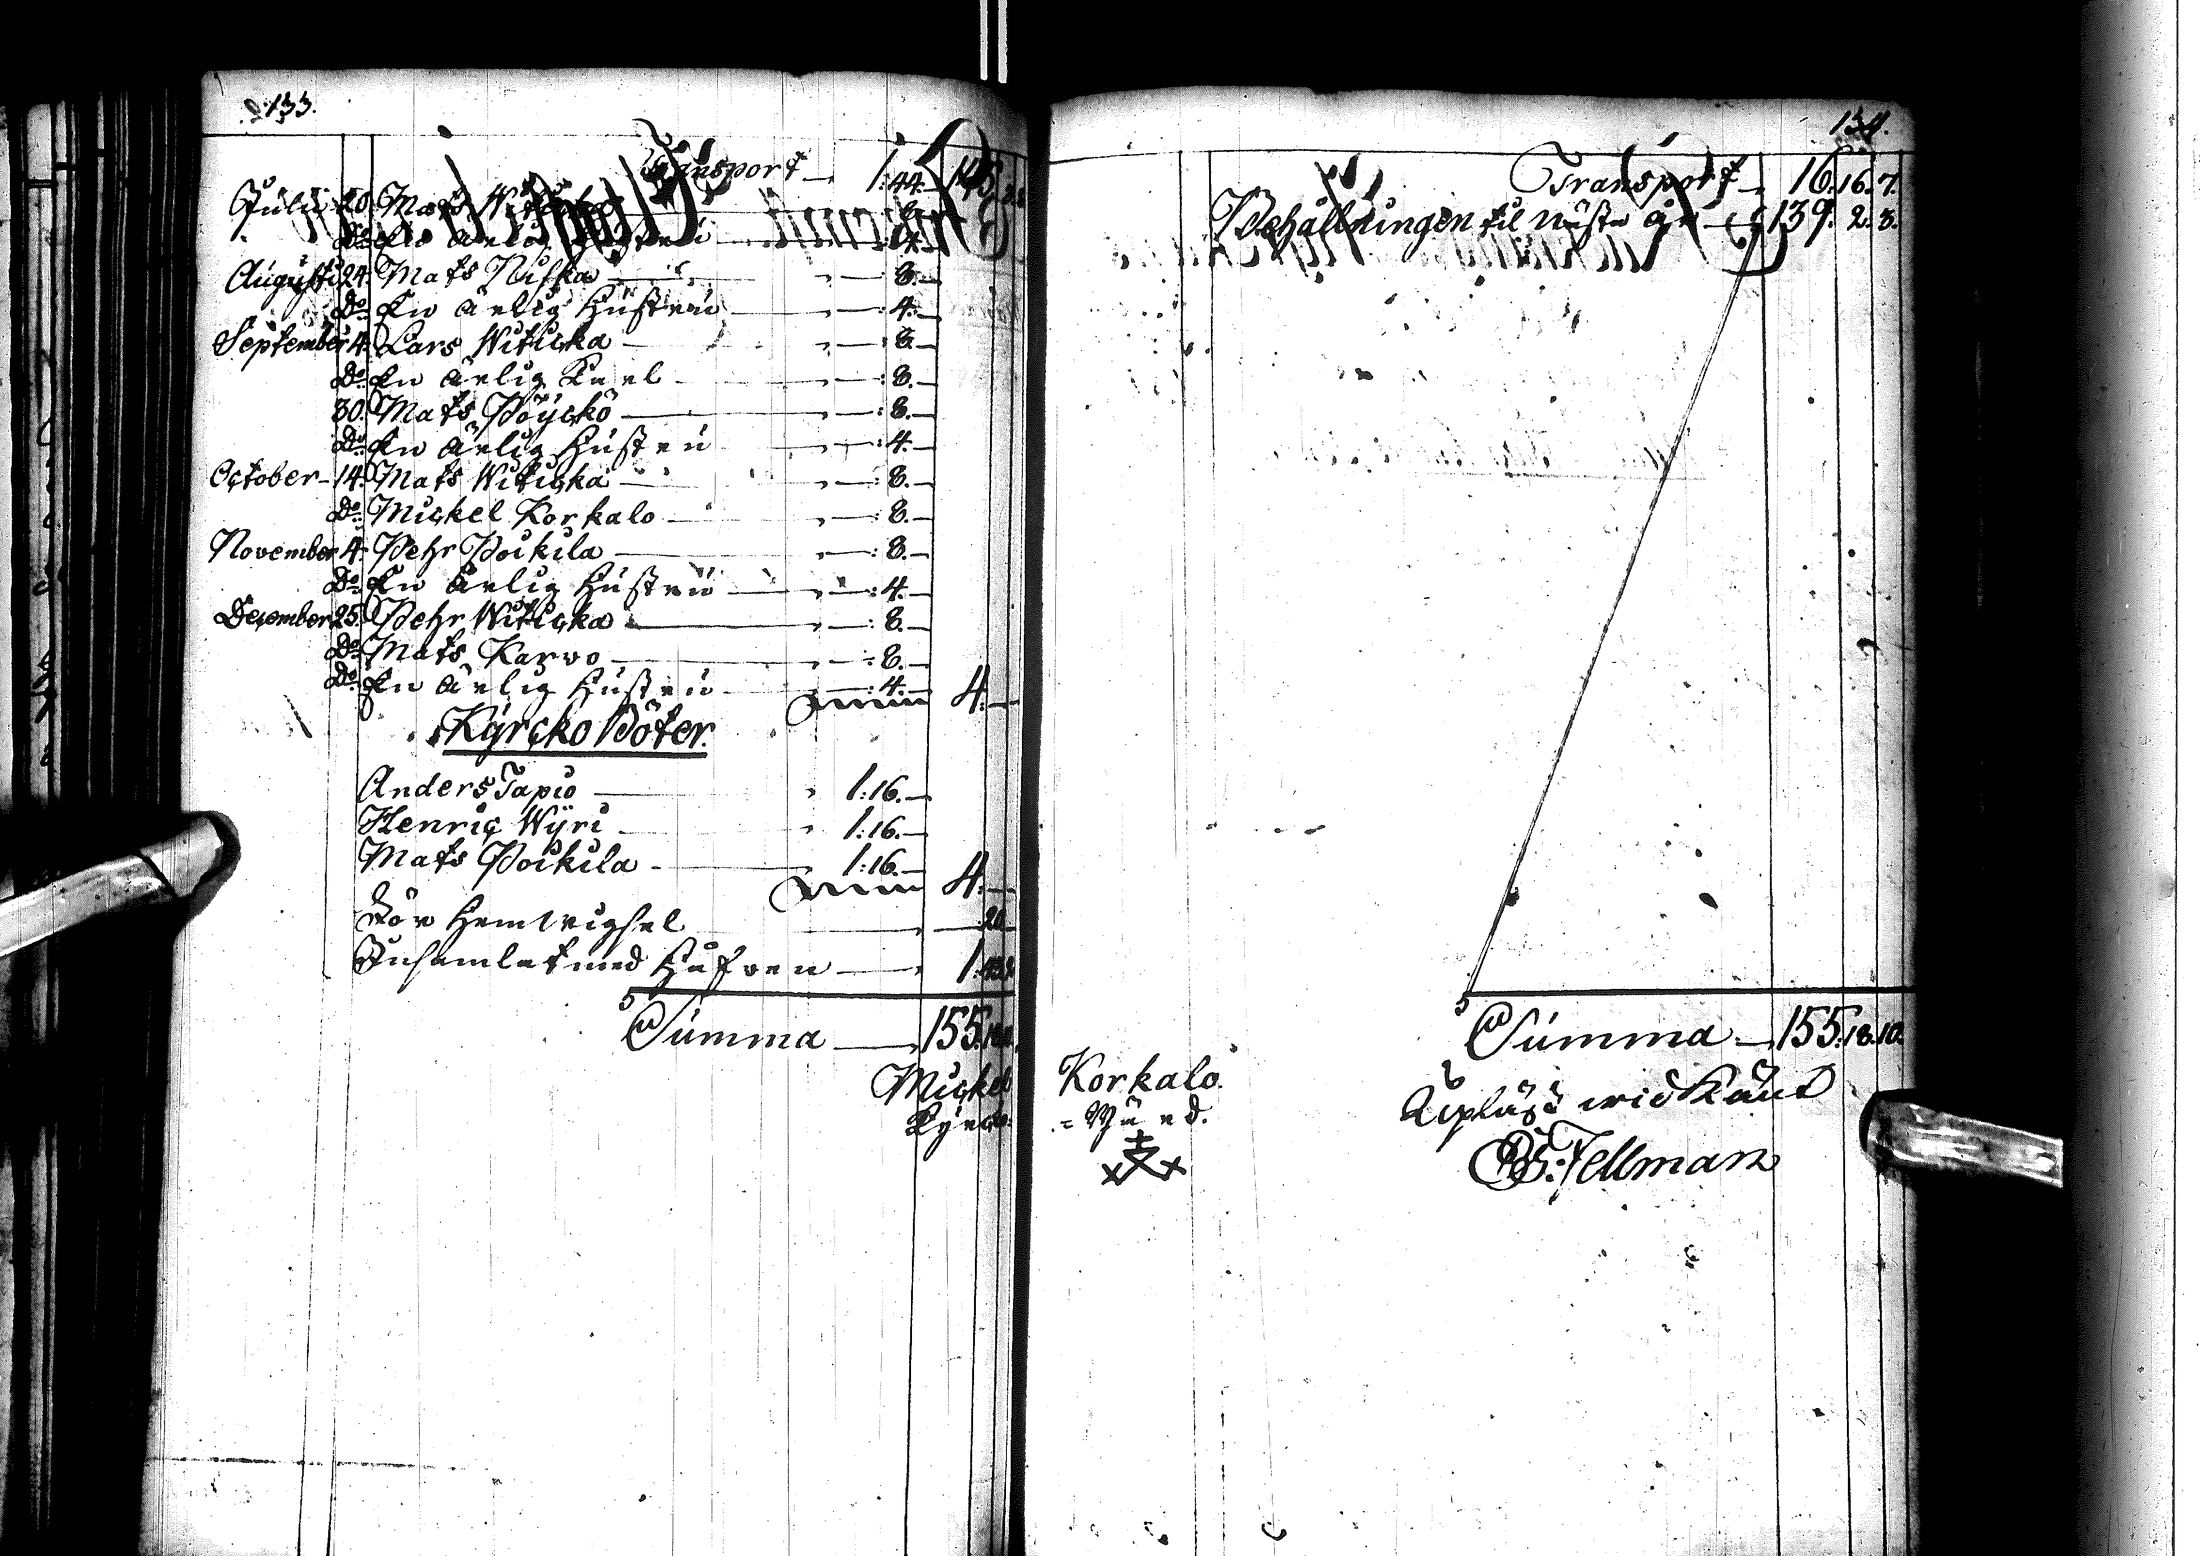 133.
Transport — 1:44.— 145.
Julii 20. Mats
Do En ärlig Hustru — :4.—
Augusti 24. Mats Niska — :8.—
Do En ärlig Hustru — :4.—
September 4. Lars Wituicka — :8.—
Do En ärlig Karl — :8.—
30. Mats Pöyckö — :8.—
Do En ärlig Hustru — :4.—
October 14. Mats Wituicka — :8.—
Do Mickel Korkalo — :8.—
November 4. Pehr Poikila — :8.—
Do En ärlig Hustru — :4.—
December 25. Pehr Wituicka — :8.—
Do Mats Karvo — :8.—
Do En ärlig Hustru — :4.— 4.—
Kyrcko Böter.
Anders Tapio — 1:16.—
Henric Wyri — 1:16.—
Mats Poikila — 1:16.— 4.—
För Hemvigsel — 20
Insamlat med Håfven — 1.
Summa — 155.
Mickel
Kyrcko
134.
Transport — 16. 16. 7.
Behållningen til nästa år — 139. 2. 3.
Summa — 155. 18. 10.
Korkalo.
= Värd.
Upläsit vid Känd
Fellman